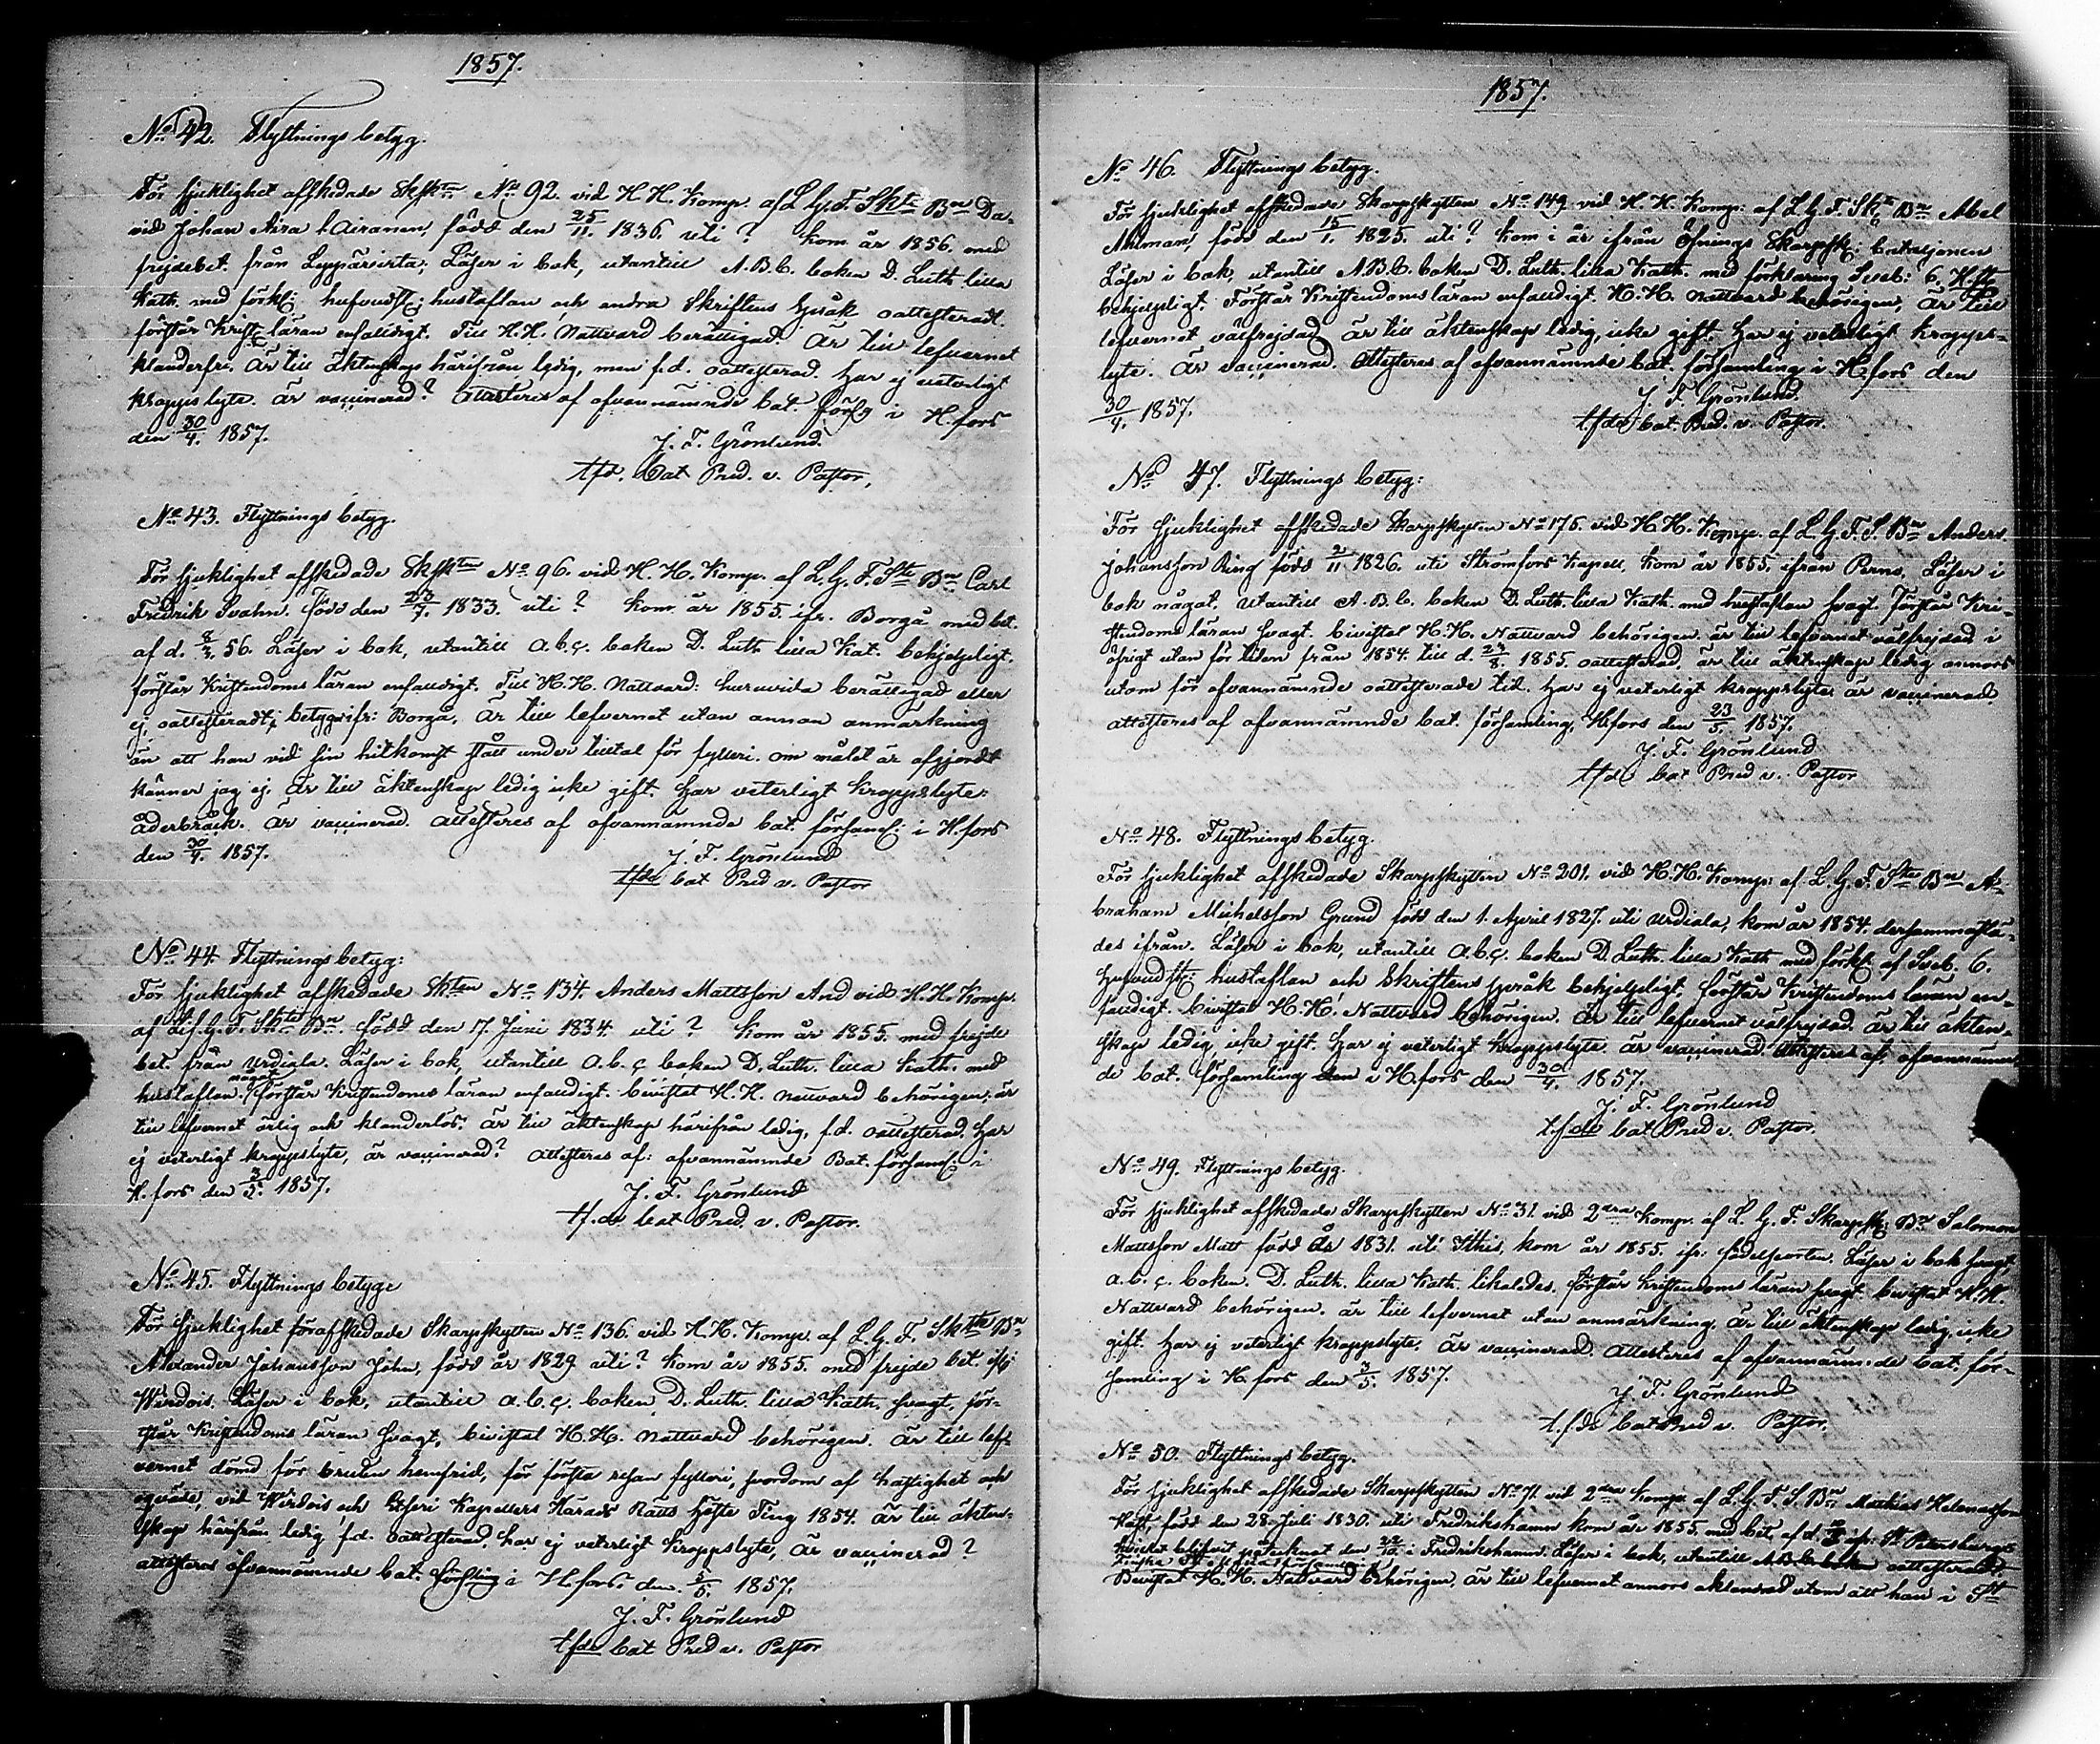 1857.
No 42. Flyttnings betyg.
För sjuklighet afskedade Skskten No 92. vid H.H. Komp. af L.G.F. Skte Bn Da-
vid Johan Aira l. Airanen, född den 25/11. 1836. uti? Kom år 1856. med
frejdebet. från Leppävirta; Läser i bok, utantill A.B.C. boken D. Luth. lilla
Kath. med förkl: hufvudst: hustaflan och andra Skriftens språk oattesteradt.
förstår Krist. läran enfaldigt. Till H.H. Nattvard berättigad. Är till lefvernet
klanderfri. Är till äktenskap härifrån ledig, men f.d. oattesterad. Har ej veterligt
kroppslyte. är vaccinerad? Attesteras af ofvannämnde bat. förs: i H.fors
den 30/4. 1857.
J. F. Grönlund.
tfde. bat Pred. v. Pastor.
No 43. Flyttnings betyg.
För sjuklighet afskedade Skskten No 96. vid H.H. Komp. af L.G.F. Skte Bn Carl
Fredrik Svahn. född den 23/7. 1833. uti? Kom år 1855. ifr. Borgå med bet.
af d. 8/3. 56. Läser i bok, utantill a.b.c. boken D. Luth lilla Kat. behjelpligt.
förstår Kristendoms läran enfaldigt. Till H.H. Nattvard: huruvida berättigad eller
ej, oattesteradt i betyg ifr: Borgå. Är till lefvernet utan annan anmärkning
än att han vid sin hitkomst stått under tilltal för fylleri. om målet är afgjordt
känner jag ej. är till äktenskap ledig icke gift. Har veterligt kroppslyte:
åderbråck. är vaccinerad. attesteras af ofvannämnde bat. församl: i H.fors
den 30/4. 1857.
J. F. Grönlund
tfde bat Pred v. Pastor
No 44 Flyttnings betyg:
För sjuklighet afskedade Skten No 134. Anders Mattsson And vid H.H. Komp.
af L.G.F. Skte Bn. född den 17. Juni 1834. uti? Kom år 1855. med frejde
bet. från Urdiala. Läser i bok, utantill a.b.c boken D. Luth. lilla Kath. med
hustaflan. något förstår Kristendoms läran enfaldigt. bivistat H.H. nattvard behörigen. är
till lefvernet ärlig och klanderlös. är till äktenskap härifrån ledig, f.d. oattesterad. Har
ej veterligt kroppslyte, är vaccinerad? attesteras af: ofvannämnde Bat. församl: i
H.fors den 3/5. 1857.
J. F. Grönlund
tf.de bat Pred. v. Pastor.
No 45. Flyttnings betyg
För sjuklighet förafskedade Skarpskytten No 136. vid H.H. Komp. af L.G.F. Skte Bn
Alexander Johansson John, född år 1829 uti? Kom år 1855. med frejde bet. ifr
Wirdois. Läser i bok, utantill a.b.c. boken, D. Luth. lilla Kath. svagt, för-
står Kristendoms läran svagt, bivistat H.H. nattvard behörigen. Är till lef-
vernet dömd för bruten hemfrid, för första resan fylleri, svordom af hastighet och
oqväde, vid Wirdois och Etseri Kapellers Härads Rätts Höste Ting 1854. är till äkten-
skap härifrån ledig f.d. oattesterad, har ej veterligt kroppslyte, är vaccinerad?
attesteras ofvannämnde bat. församling i H.fors. den 5/5. 1857.
J. F. Grönlund
tfde bat Pred v. Pastor
1857.
No 46. Flyttnings betyg.
För sjuklighet afskedade Skarpskytten No 149 vid H.H. Komp: af L.G.F. Skte Bn Abel
Ahlman, född den 15/1. 1825. uti? Kom i år ifrån Öfnings Skarpsk: bataljonen
Läser i bok, utantill A.B.C. boken D. Luth. lilla Kath. med förklaring Sveb: 6. H.st
behjelpligt. Förstår Kristendoms läran enfaldigt. H.H. Nattvard behörigen, är till
lefvernet välfrejdad. är till äktenskap ledig, icke gift. Har ej veterligt kropps-
lyte. är vaccinerad. Attesteras af ofvannämnde bat. församling i H.fors den
30/4. 1857.
J. F. Grönlund.
t.fde bat. Pred. v. Pastor.
No 47. Flyttnings betyg:
För sjuklighet afskedade Skarpskytten No 175. vid H.H. Komp. af L.G.F.S. Bn Anders
Johansson Ring född 2/11 1826. uti Strömfors Kapell, kom år 1855. ifrån Perno. Läser i
bok något, utantill A.B.C. boken D. Luth. lilla Kath. med hustaflan svagt. förstår Kri-
stendoms läran svagt. bivistat H.H. Nattvard behörigen. är till lefvernet välfrejdad i
öfrigt utan för tiden från 1854. till d. 23/8. 1855 oattesterad, är till äktenskap ledig annors
utom för ofvannämnde oattesterade tid. Har ej veterligt kroppslyte. är vaccinerad.
attesteras af ofvannämnde bat. församling. H.fors den 23/5. 1857.
J. F. Grönlund
tfde bat Pred v. Pastor
No 48. Flyttnings betyg.
För sjuklighet afskedade Skarpskytten No 201. vid H.H. Komp: af L.G.F. Skte Bn A-
braham Michelsson Grund född den 1. April 1827. uti Urdiala, kom år 1854. dersammastä-
des ifrån. Läser i bok, utantill a.b.c. boken D. Luth. lilla Kath. med förkl: af Sveb. 6.
Hufvudst: hustaflan och Skriftens språk behjelpligt. förstår Kristendoms läran en-
faldigt. bivistat H.H. Nattvard behörigen. Är till lefvernet välfrejdad. är till äkten-
skap ledig, icke gift. Har ej veterligt kroppslyte. är vaccinerad. Attesteras af: ofvannämn-
de bat. församling den i H.fors den 30/4. 1857.
J. F. Grönlund
t.fde bat Pred v. Pastor.
No 49. Flyttnings betyg.
För sjuklighet afskedade Skarpskytten No 31. vid 2dra Komp. af L.G.F. Skarpsk: Bn Salomon
Mattsson Matt född år 1831. uti Ithis, kom år 1855. ifr: födelseorten. Läser i bok svagt
a.b.c. boken. D. Luth. lilla Kath. likaledes. förstår Kristendoms läran svagt. bivistat H.H.
Nattvard behörigen. är till lefvernet utan anmärkning. Är till äktenskap ledig, icke
gift. Har ej veterligt kroppslyte. Är vaccinerad. attesteras af ofvannämnde bat. för-
samling i H.fors den 3/5. 1857.
J. F. Grönlund
t.fde bat Pred v. Pastor.
No 50. Flyttnings betyg.
För sjuklighet afskedade Skarpskytten No 71 vid 2dra Komp af L.G.F.S. Bn Mathias
född den 28. Juli 1830. uti Fredrikshamn kom år 1855. med bet. af d. ifr: St Petersburgs
i Fredrikshamn. Läser i bok, utantill A.B.C. boken oattesteradt.
Bivistat H.H. Nattvard behörigen, är till lefvernet annors oklandrad utom att han i St